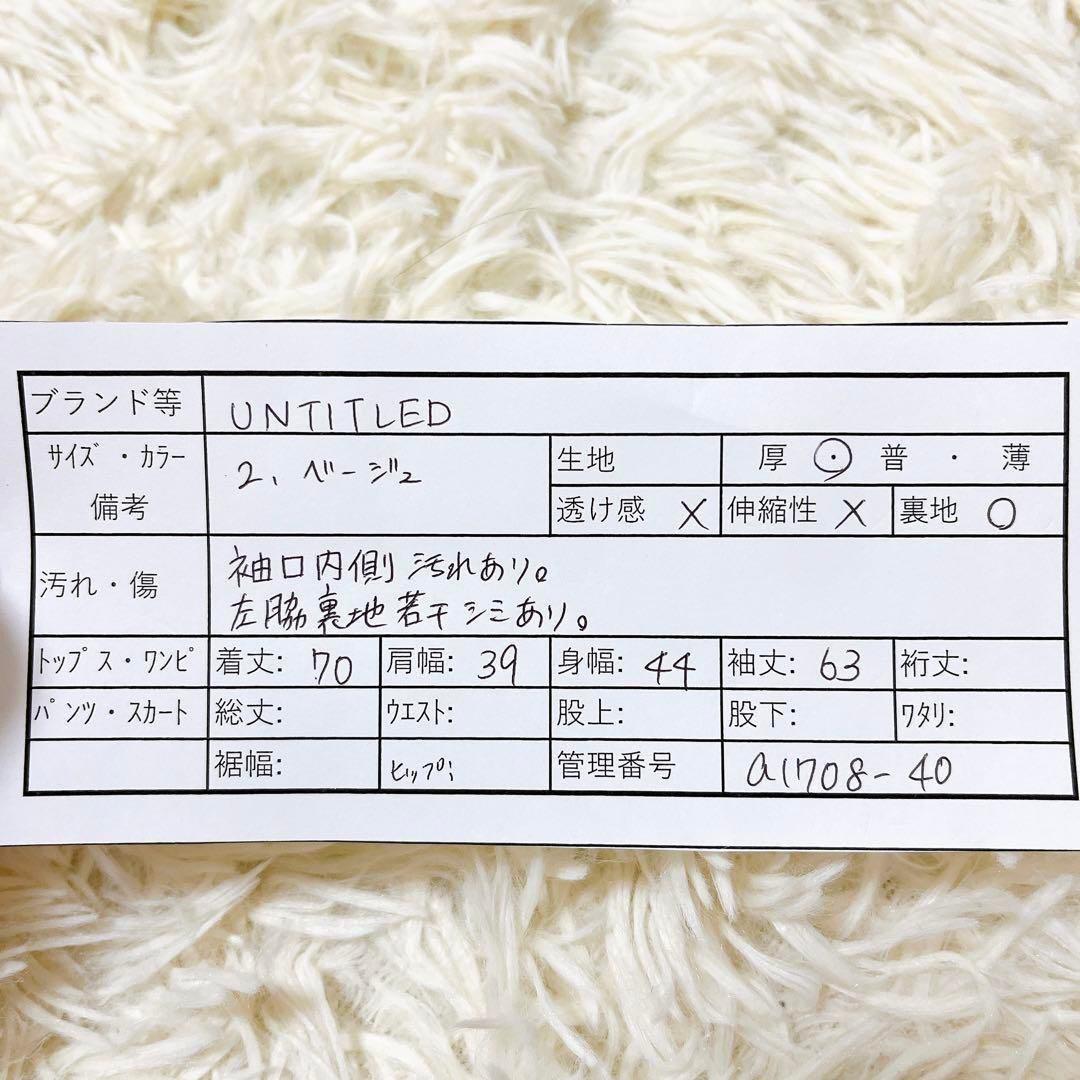 ブランド等 UNTITLED
サイズ・カラー 備考 2、ベージュ
生地 厚 ・ 普 ・ 薄
透け感 × 伸縮性 × 裏地 ○
汚れ・傷
袖口内側汚れあり。
左脇裏地若干シミあり。
トップス・ワンピ 着丈: 70 肩幅: 39 身幅: 44 袖丈: 63 裄丈:
パンツ・スカート 総丈: ウエスト: 股上: 股下: ワタリ:
裾幅: ヒップ: 管理番号 a1708-40